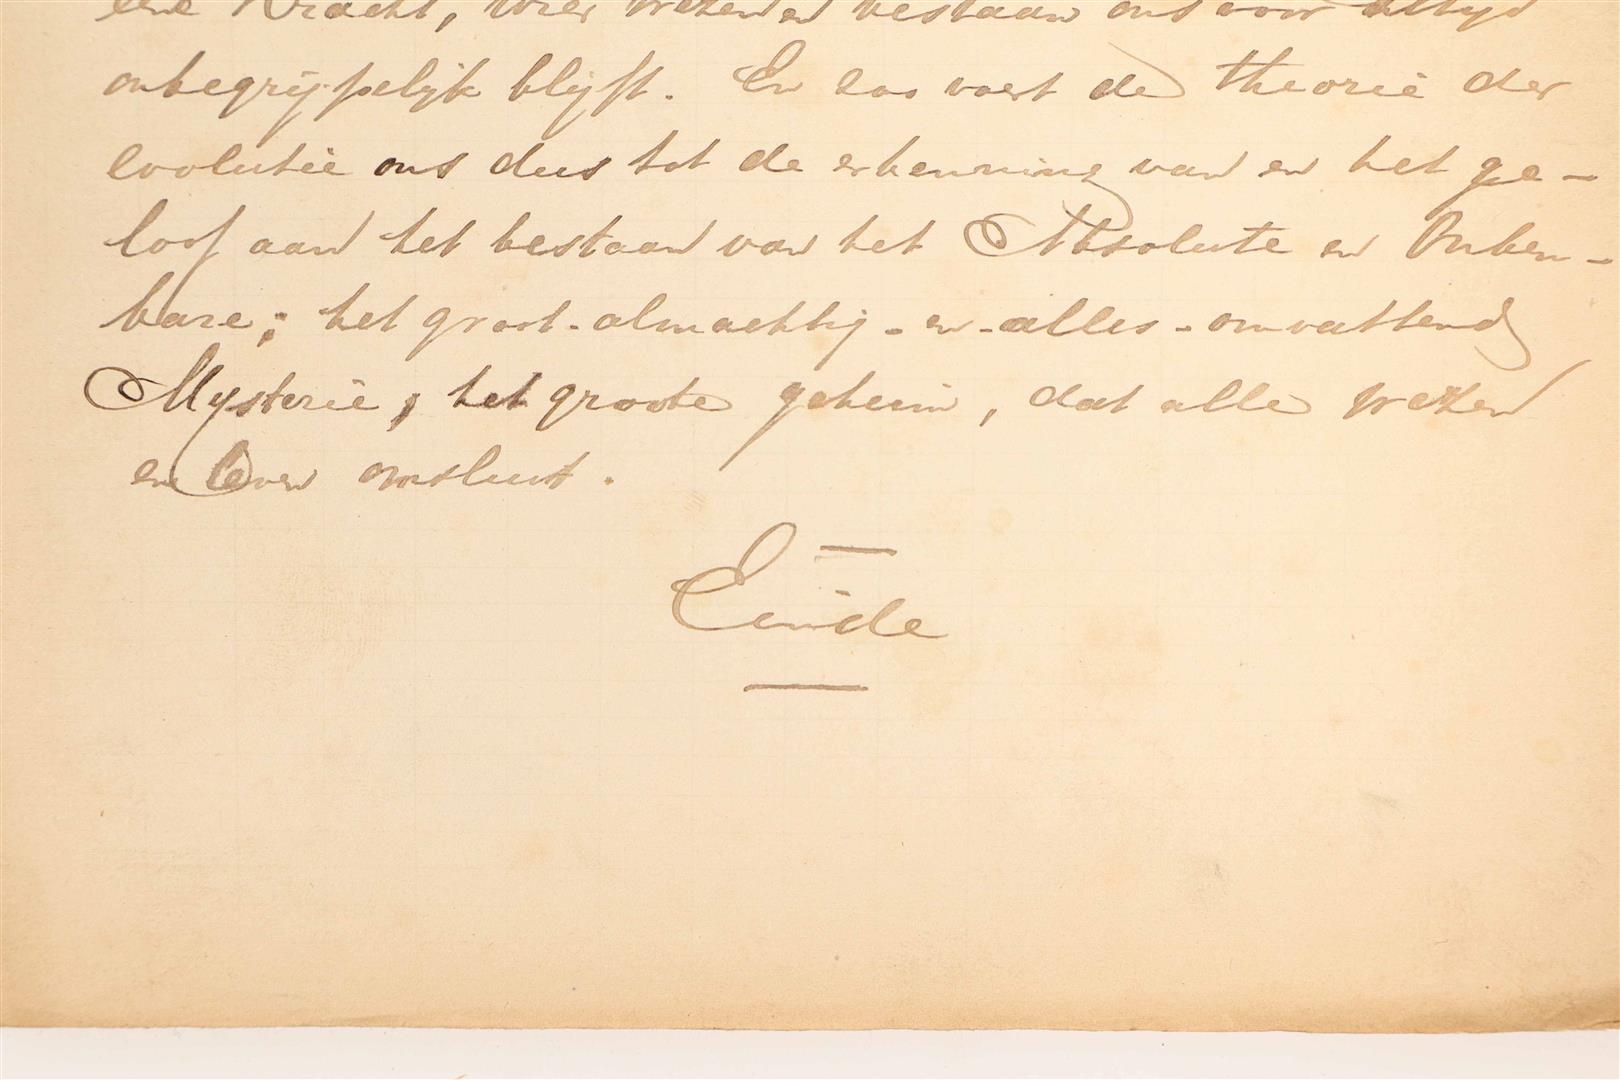 eene Kracht, wier wezen en bestaan ons voor altijd
onbegrijpelijk blijft. En zoo voert de theorie der
evolutie ons dus tot de erkenning van en het ge-
loof aan het bestaan van het Absolute en Onken-
bare; het groot-almachtig-en-alles-omvattend
Mysterie, het groote geheim, dat alle wezen
en leven omsluit.
Einde